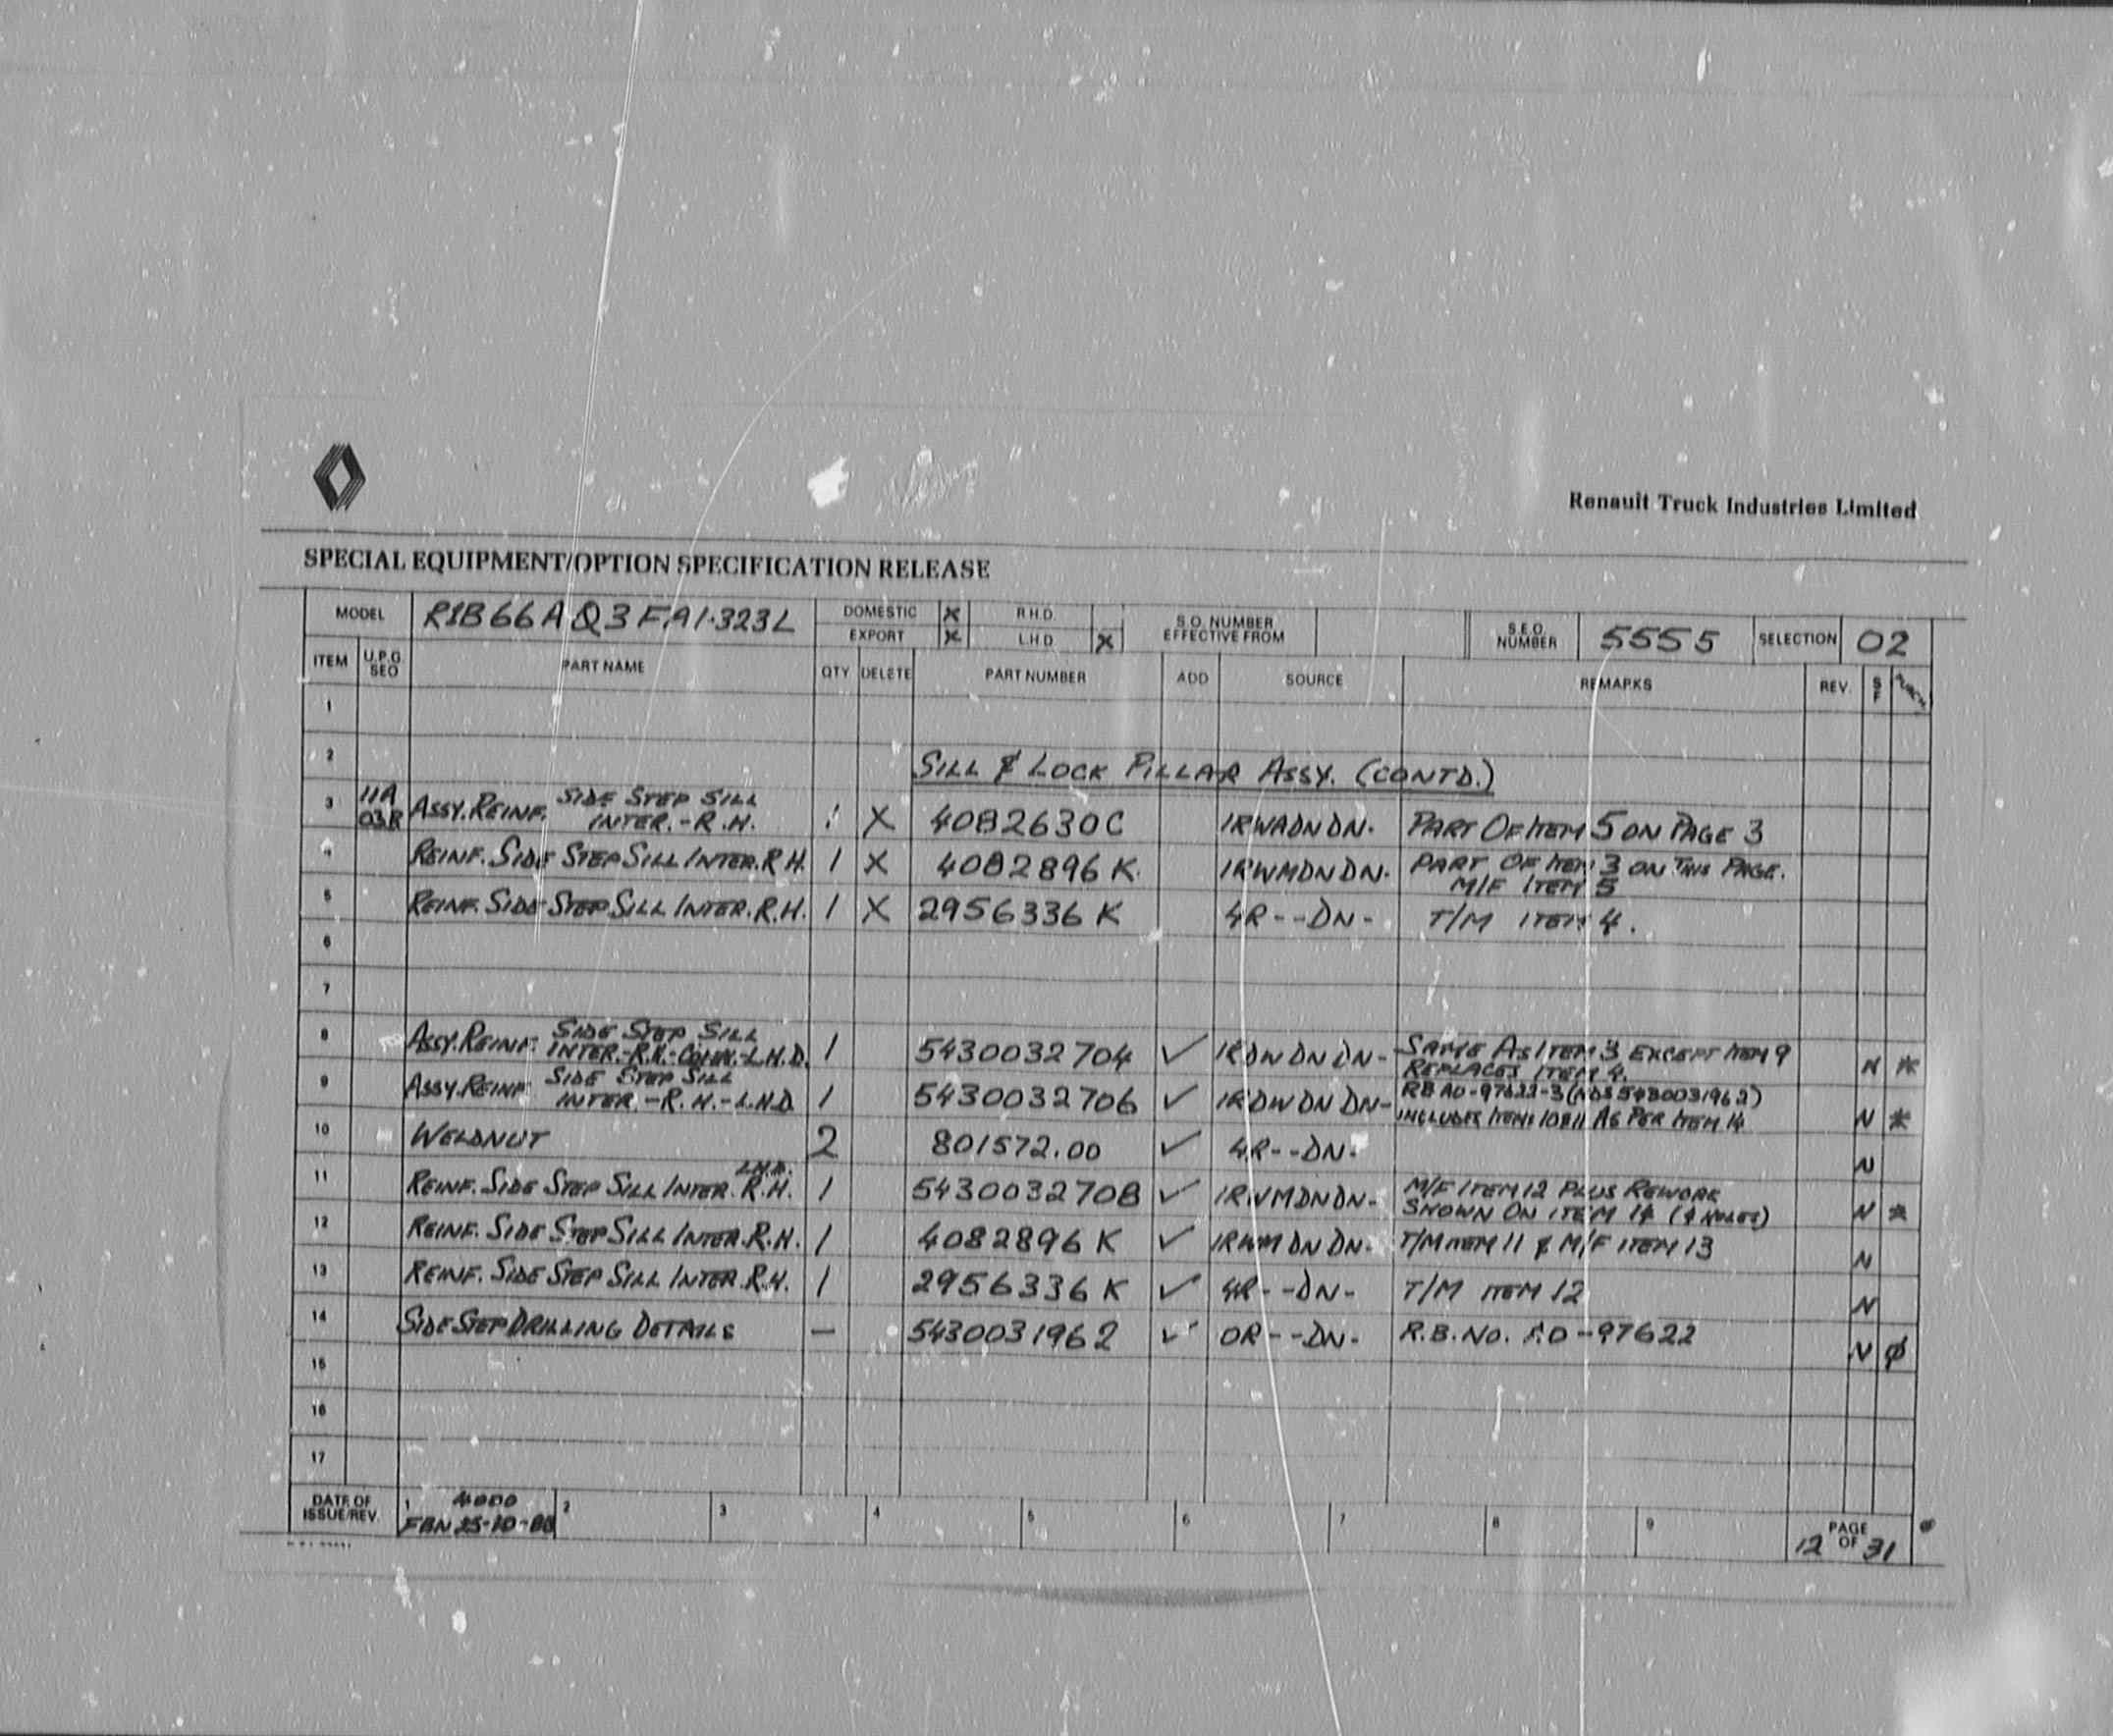 Renault Truck Industries Limited
SPECIAL EQUIPMENT/OPTION SPECIFICATION RELEASE
MODEL R1B66AQ3FA1.323L DOMESTIC X R.H.D. S.O. NUMBER EFFECTIVE FROM S.E.O. NUMBER 5555 SELECTION 02
EXPORT X L.H.D X
ITEM U.P.G. SEQ PART NAME QTY DELETE PART NUMBER ADD SOURCE REMARKS REV. S F PURCH
1
2 SILL & LOCK PILLAR ASSY. (CONTD.)
3 11A 03R ASSY.REINF. SIDE STEP SILL INTER.-R.H. 1 X 4082630C 1RWADNDN- PART OF ITEM 5 ON PAGE 3
4 REINF. SIDE STEP SILL INTER.R.H. 1 X 4082896K 1RWMDNDN- PART OF ITEM 3 ON THIS PAGE. M/F ITEM 5
5 REINF. SIDE STEP SILL INTER.R.H. 1 X 2956336K 4R--DN- T/M ITEM 4.
6
7
8 ASSY.REINF. SIDE STEP SILL INTER.-R.H.- -L.H.D. 1 5430032704 ✓ 1RDWDNDN- SAME AS ITEM 3 EXCEPT ITEM 9 REPLACES ITEM 4. N *
9 ASSY.REINF. SIDE STEP SILL INTER.-R.H.-L.H.D. 1 5430032706 ✓ 1RDWDNDN- RB AD-97622-3 (NDS 5430031962) INCLUDES ITEMS 10&11 AS PER ITEM 14 N *
10 WELDNUT 2 801572.00 ✓ 4R--DN- N
11 REINF. SIDE STEP SILL INTER. R.H. L.H.D. 1 5430032708 ✓ 1RWMDNDN- M/F ITEM 12 PLUS REWORK SHOWN ON ITEM 14 (4 HOLES) N *
12 REINF. SIDE STEP SILL INTER.R.H. 1 4082896K ✓ 1RWMDNDN- T/M ITEM 11 & M/F ITEM 13 N
13 REINF. SIDE STEP SILL INTER.R.H. 1 2956336K ✓ 4R--DN- T/M ITEM 12 N
14 SIDE STEP DRILLING DETAILS — 5430031962 ✓ OR--DN- R.B.NO. AD-97622 N ϕ
15
16
17
DATE OF ISSUE/REV. 1 4000 2 3 4 5 6 7 8 9 PAGE 12 OF 31
FBN 25-10-88